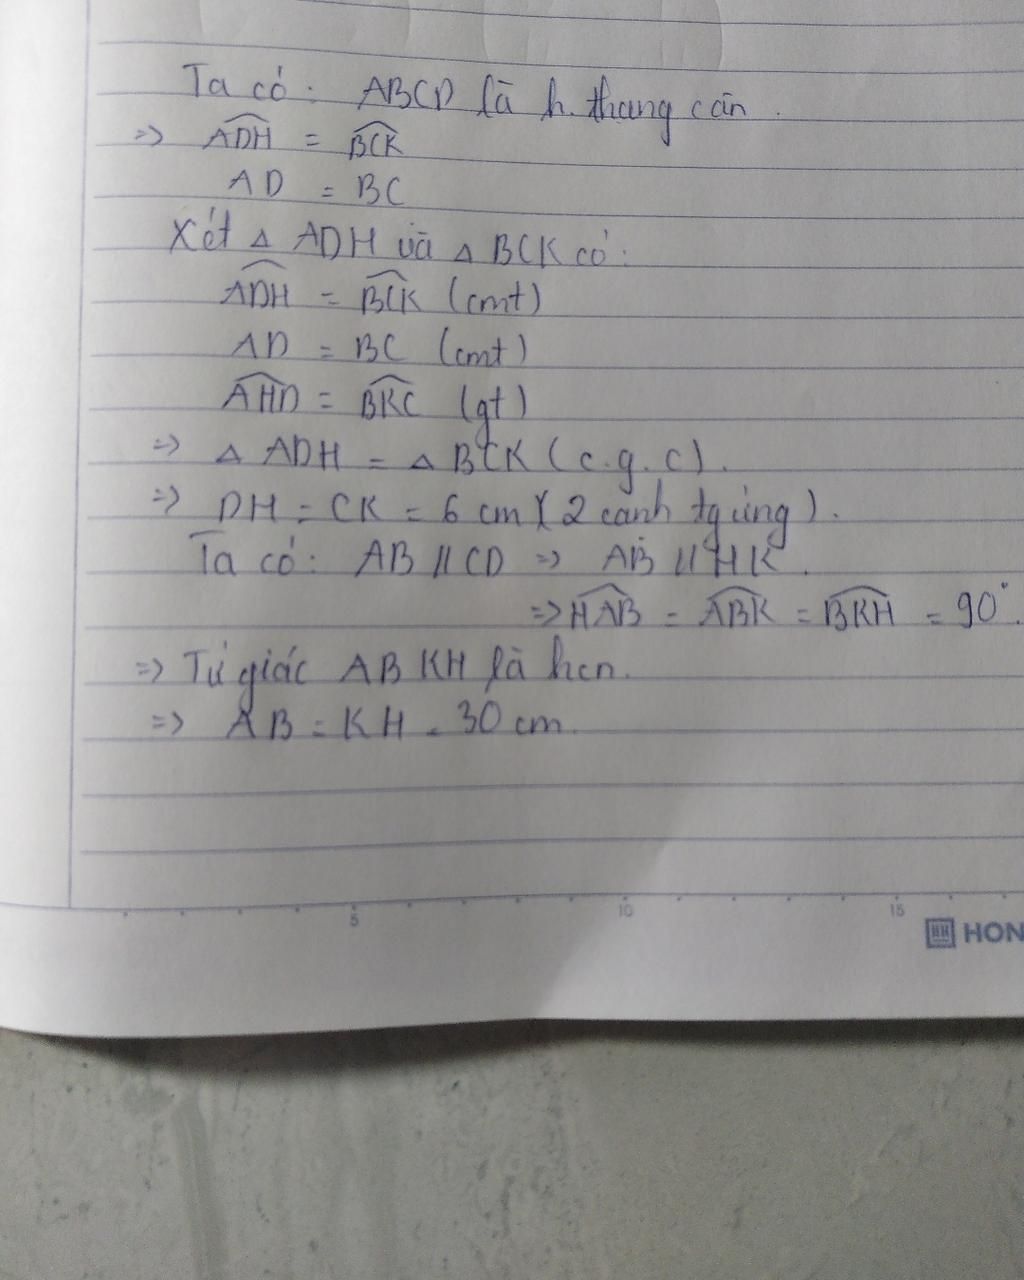 Ta có: ABCD là h.thang cân.
=> ADH = BCK
AD = BC
Xét △ ADH và △ BCK có:
ADH = BCK (cmt)
AD = BC (cmt)
AHD = BKC (gt)
=> △ ADH = △ BCK (c.g.c).
=> DH = CK = 6 cm (2 cạnh tg ứng).
Ta có: AB // CD => AB // HK.
=> HAB = ABK = BKH = 90°.
=> Tứ giác ABKH là hcn.
=> AB = KH = 30 cm.
5 10 15
HON